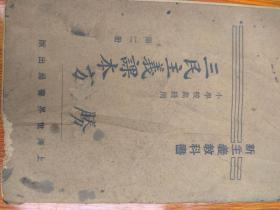 新主義教科書
小學校高級用
三民主義課本
第二冊
上海世界書局出版